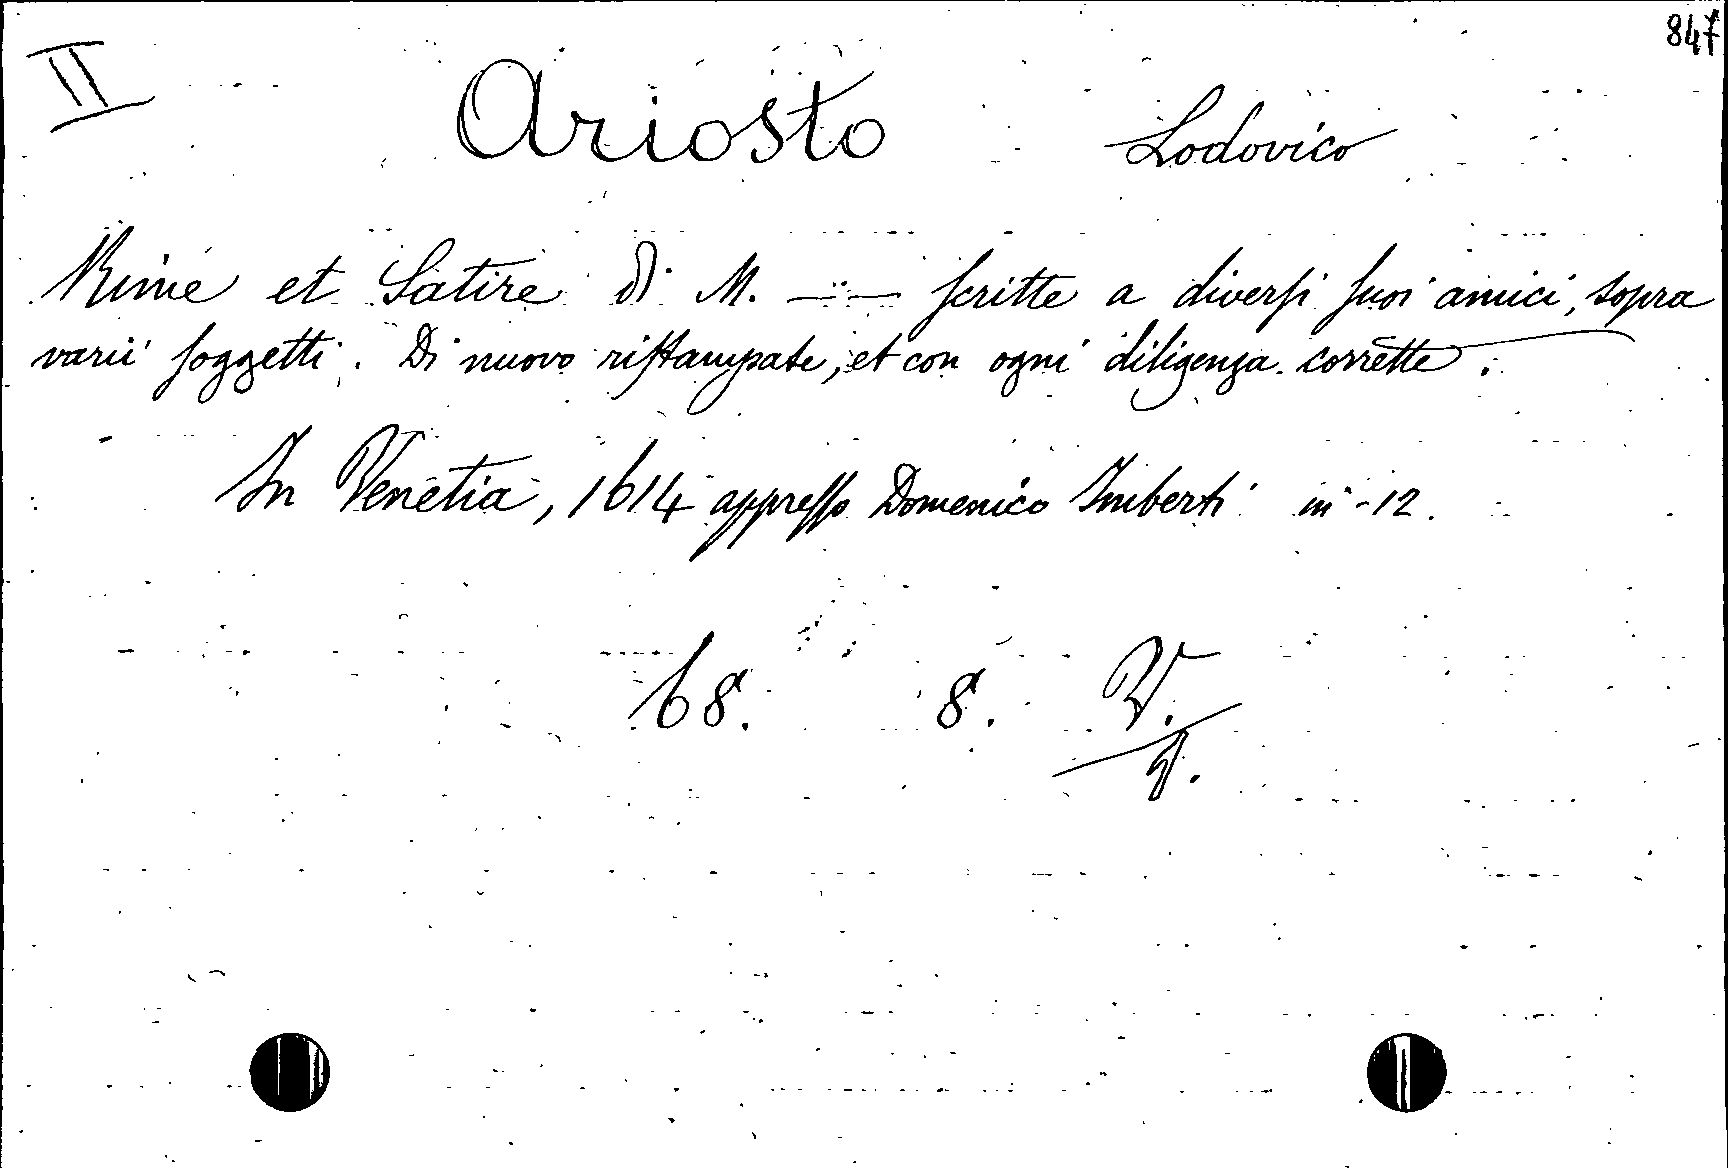 847
II
Ariosto Lodovico
Rime et Satire di M. —..— ſcritte a diverſi ſuoi amici, sopra
varii ſoggetti. Di nuovo riſtampate, et con ogni diligenza corrette.
In Venetia, 1614 appreſſo Domenico Imberti in-12.
68. 8. V.